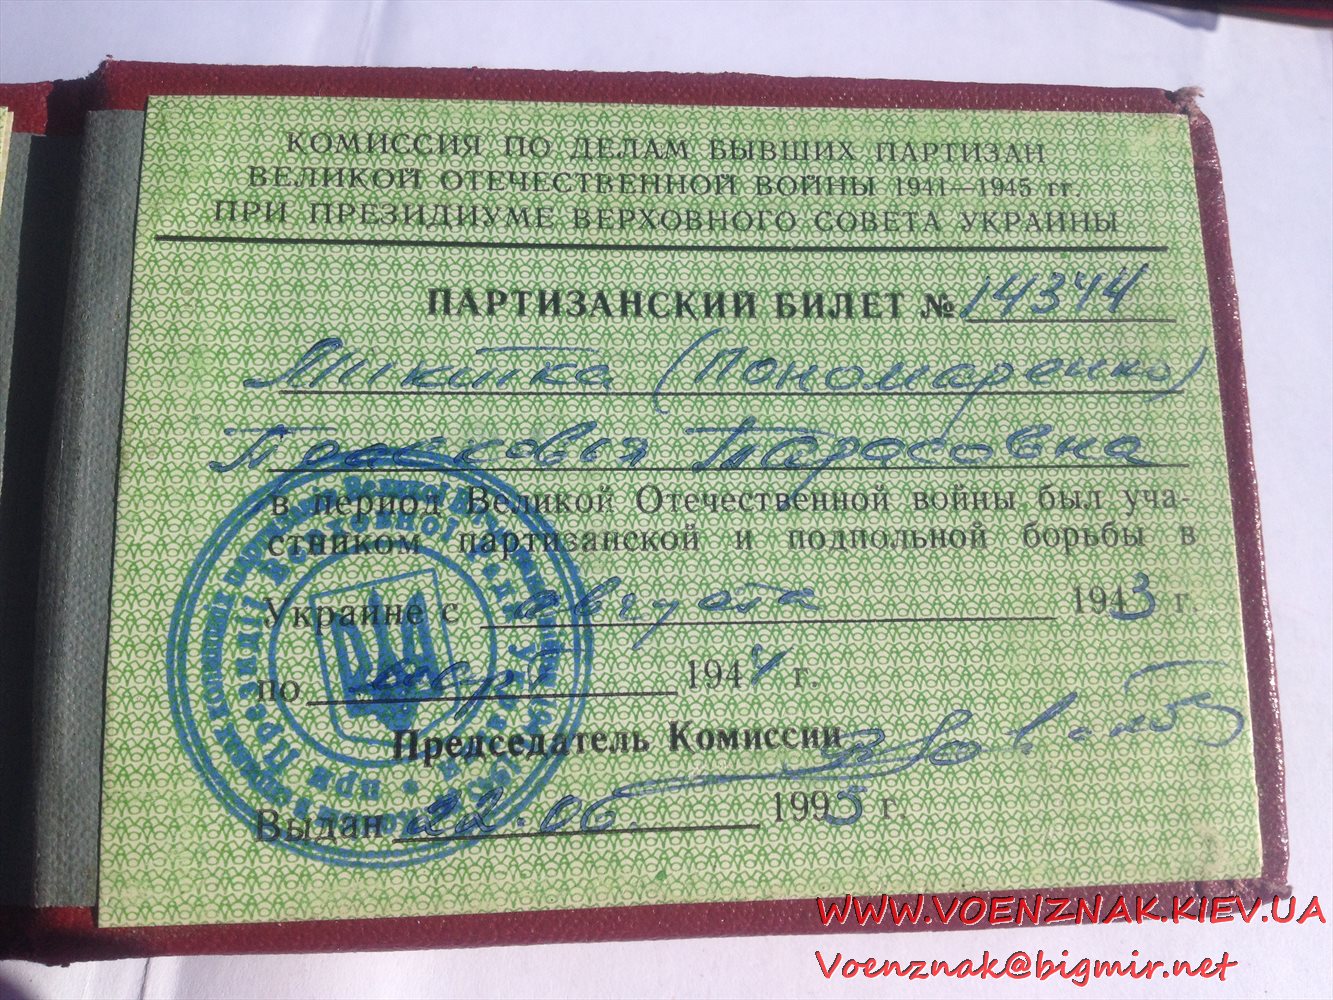 КОМИССИЯ ПО ДЕЛАМ БЫВШИХ ПАРТИЗАН
ВЕЛИКОЙ ОТЕЧЕСТВЕННОЙ ВОЙНЫ 1941—1945 гг.
ПРИ ПРЕЗИДИУМЕ ВЕРХОВНОГО СОВЕТА УКРАИНЫ
ПАРТИЗАНСКИЙ БИЛЕТ № 14344
Микитка (Пономаренко)
Прасковья Тарасовна
в период Великой Отечественной войны был уча
стником партизанской и подпольной борьбы в
Украине с августа 1943 г.
по 1944 г.
Председатель Комиссии
Выдан 22.06. 1995 г.
WWW.VOENZNAK.KIEV.UA
Voenznak@bigmir.net